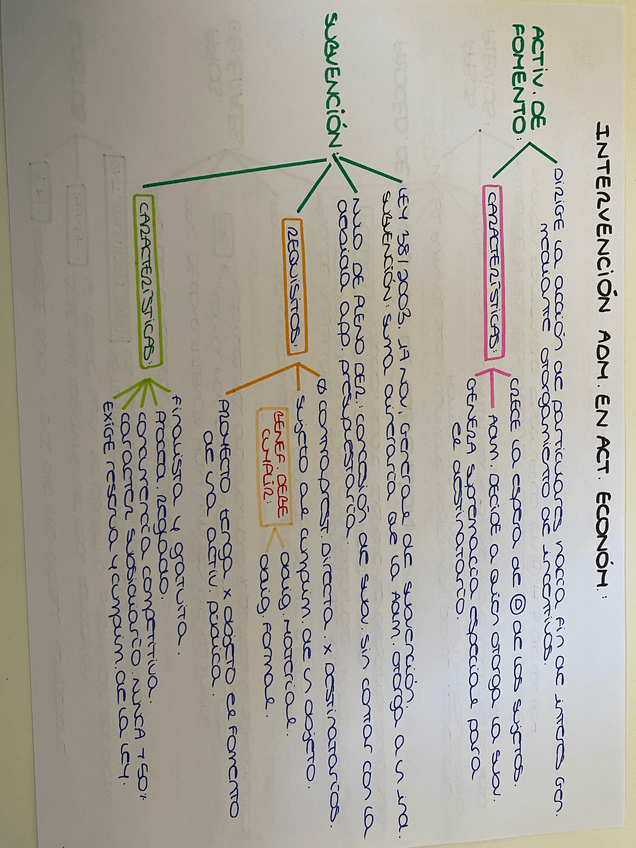 INTERVENCIÓN ADM. EN ACT. ECONÓM:
ACTIV. DE
FOMENTO:
DIRIGE LA ACCIÓN DE PARTICULARES HACIA FIN DE INTERES GEN.
MEDIANTE OTORGAMIENTO DE INCENTIVOS.
CARACTERÍSTICAS:
CRECE LA ESFERA DE D DE LOS SUJETOS.
ADM. DECIDE A QUIEN OTORGA LA SUBV.
GENERA SUPREMACIA ESPECIAL PARA
EL DESTINATARIO.
SUBVENCIÓN:
LEY 38/2003, 17 NOV, GENERAL DE SUBVENCIÓN.
SUBVENCIÓN: SUMA DINERARIA QUE LA ADM. OTORGA A UN IND.
NULO DE PLENO DER: CONCESIÓN DE SUBV. SIN CONTAR CON LA
DEBIDA APP. PRESUPUESTARIA.
REQUISITOS:
Ø CONTRAPREST. DIRECTA X DESTINATARIOS.
SUJETO AL CUMPLIM. DE UN OBJETO.
BENEF. DEBE
CUMPLIR:
OBLIG. MATERIAL.
OBLIG. FORMAL.
PROYECTO TENGA X OBJETO EL FOMENTO
DE UNA ACTIV. PÚBLICA.
CARACTERÍSTICAS:
FINALISTA Y GRATUITA.
PROCED. REGLADO.
CONCURRENCIA COMPETITIVA.
CARACTER SUBSIDIARIO NUNCA +50%
EXIGE RESERVA Y CUMPLIM. DE LA LEY.